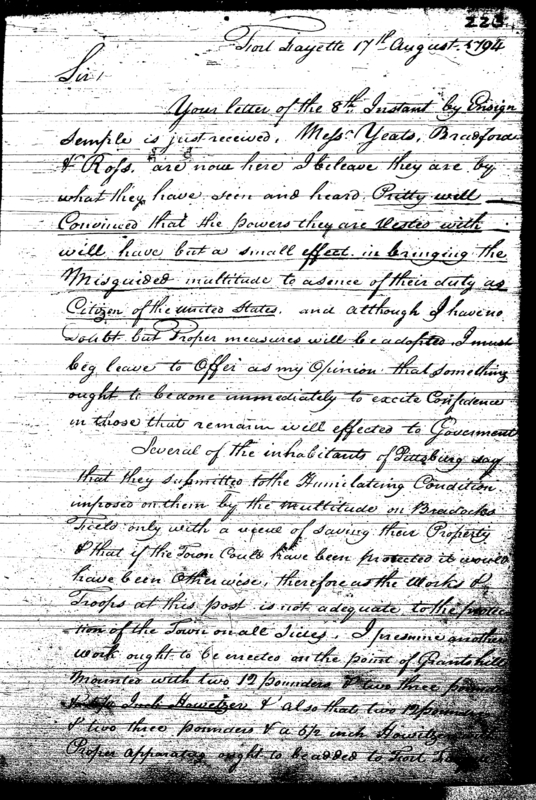 223
Fort Fayette 17th August 1794
Sir!
Your letter of the 8th Instant by Ensign
Semple is just received, Messrs Yeats, Bradford
& Ross, are now here I beleave they are by
what they have seen and heard Pritty well
Convinced that the powers they are Vested with
will have but a small effect in bringing the
Misguided multitude to a sence of their duty as
Citizen of the united States, and although I have no
doubt but Proper measures will be adopted I must
beg leave to Offer as my Opinion that something
ought to be done immediately to excite Confidence
in those that remain will effected to Goverment
Several of the inhabitants of Pittsburg say
that they submitted to the Humilating Condition
imposed on them by the multitude on Bradocks
Fields only with a view of saving their Property
& that if the Town Could have been protected it would
have been Otherwise, therefore as the Works &
Troops at this post is not adequate to the protec
tion of the Town on all Sides, I presume another
work ought to be erected on the point of Grants hill
Mounted with two 12 pounders & two three pounders
Inch Howetzer & also that two 12 pounders
& two three pounders & a 5½ inch Howitzer
Proper apparatus ought to be added to Fort Fayette